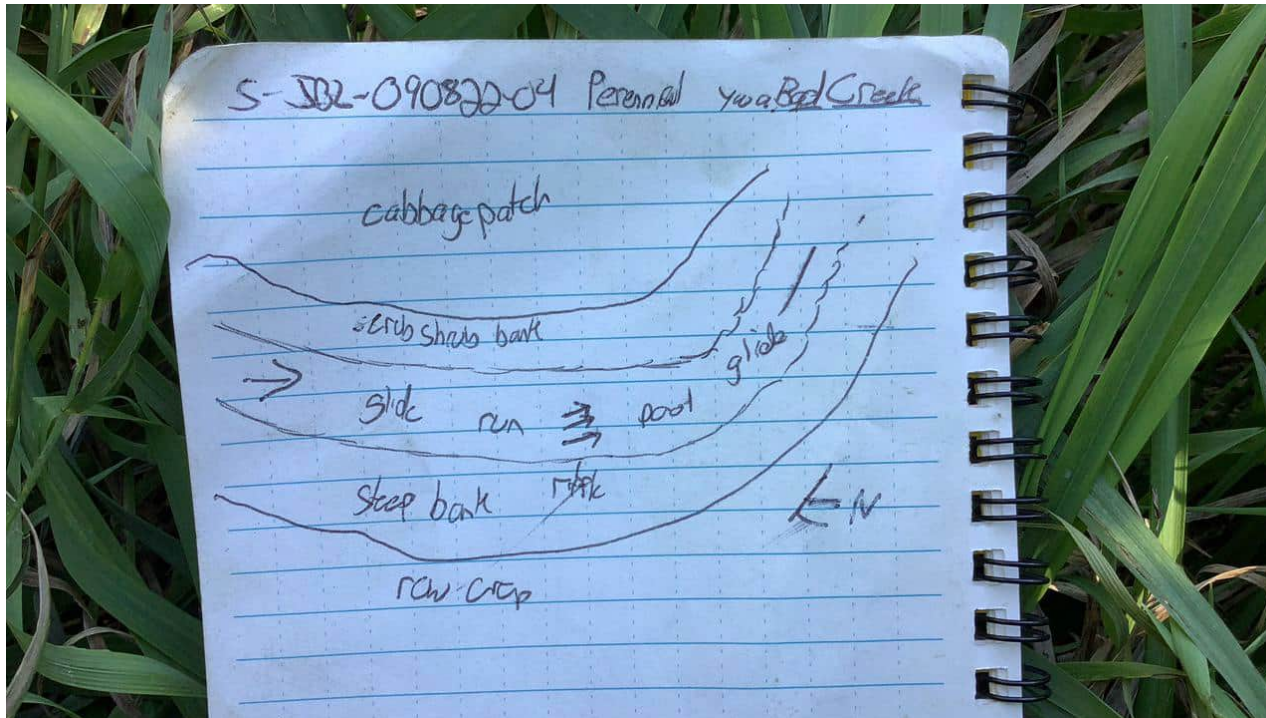 S-JBL-090822-04 Perennial Bad Creek
cabbage patch
scrub shrub bank
glide
run pool
steep bank
row crop
N